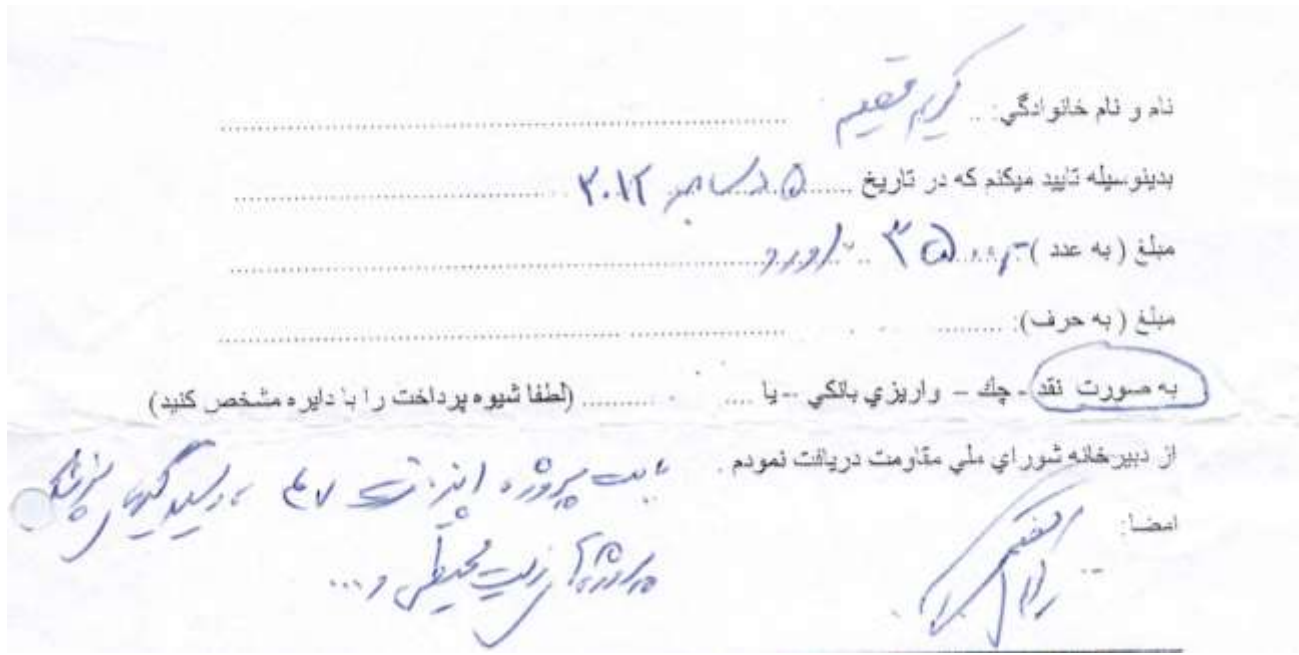 نام و نام خانوادگي: .. کریم قصیم
بدينوسيله تاييد ميكنم كه در تاريخ ..... ۵ دسامبر ۲۰۱۲
مبلغ ( به عدد ) ۳۵۰۰ یورو
مبلغ ( به حرف): .........
به صورت نقد - چك - واريزي بانكي - يا .... .......... (لطفا شيوه پرداخت را با دايره مشخص كنيد)
از دبيرخانه شوراي ملي مقاومت دريافت نمودم . بابت پروژه اینترنت
امضا:
پروژه زیست محیطی و ...